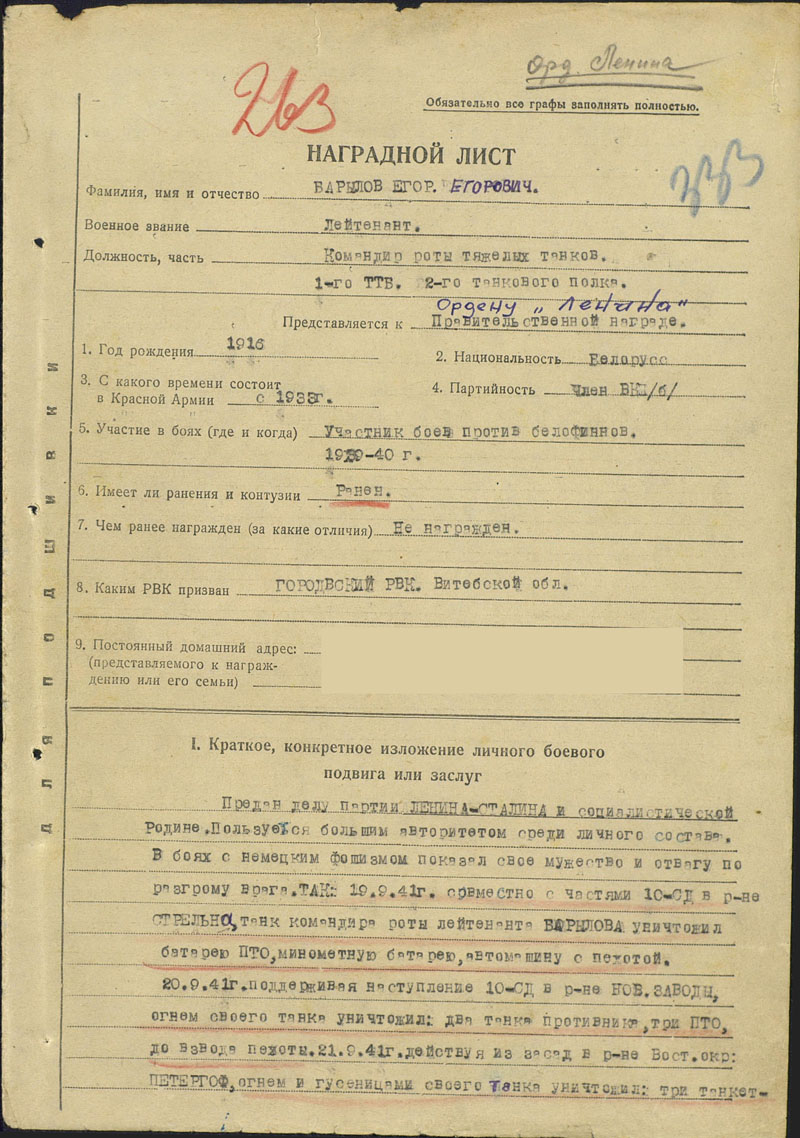 Орд. Ленина
263
Обязательно все графы заполнять полностью.
НАГРАДНОЙ ЛИСТ
353
Фамилия, имя и отчество БАРЫЛОВ ЕГОР. ЕГОРОВИЧ.
Военное звание Лейтенант.
Должность, часть Командир роты тяжелых танков.
1-го ТТБ. 2-го танкового полка.
Ордену „Ленина"
Представляется к Правительственной награде.
1. Год рождения 1916
2. Национальность Белорусс
3. С какого времени состоит
в Красной Армии с 1938г.
4. Партийность Член ВКП/б/
5. Участие в боях (где и когда) Участник боев против белофиннов.
1939-40 г.
6. Имеет ли ранения и контузии Ранен.
7. Чем ранее награжден (за какие отличия) Не награжден.
8. Каким РВК призван ГОРОДВСКИЙ РВК. Витебской обл.
9. Постоянный домашний адрес:
(представляемого к награж-
дению или его семьи)
ДЛЯ ПОДШИВКИ
I. Краткое, конкретное изложение личного боевого
подвига или заслуг
Предан делу партии ЛЕНИНА-СТАЛИНА и социалистической
Родине.Пользуется большим авторитетом среди личного состава.
В боях с немецким фошизмом показал свое мужество и отвагу по
разгрому врага.ТАК: 19.9.41г. совместно с частями 10-СД в р-не
СТРЕЛЬНА,танк командира роты лейтенанта БАРЫЛОВА уничтожил
батарею ПТО,минометную батарею,автомашину с пехотой.
20.9.41г.поддерживая наступление 10-СД в р-не НОВ.ЗАВОДЫ,
огнем своего танка уничтожил: два танка противника,три ПТО,
до взвода пехоты.21.9.41г.действуя из засад в р-не Вост.окр:
ПЕТЕРГОФ,огнем и гусеницами своего танка уничтожил: три танкет-